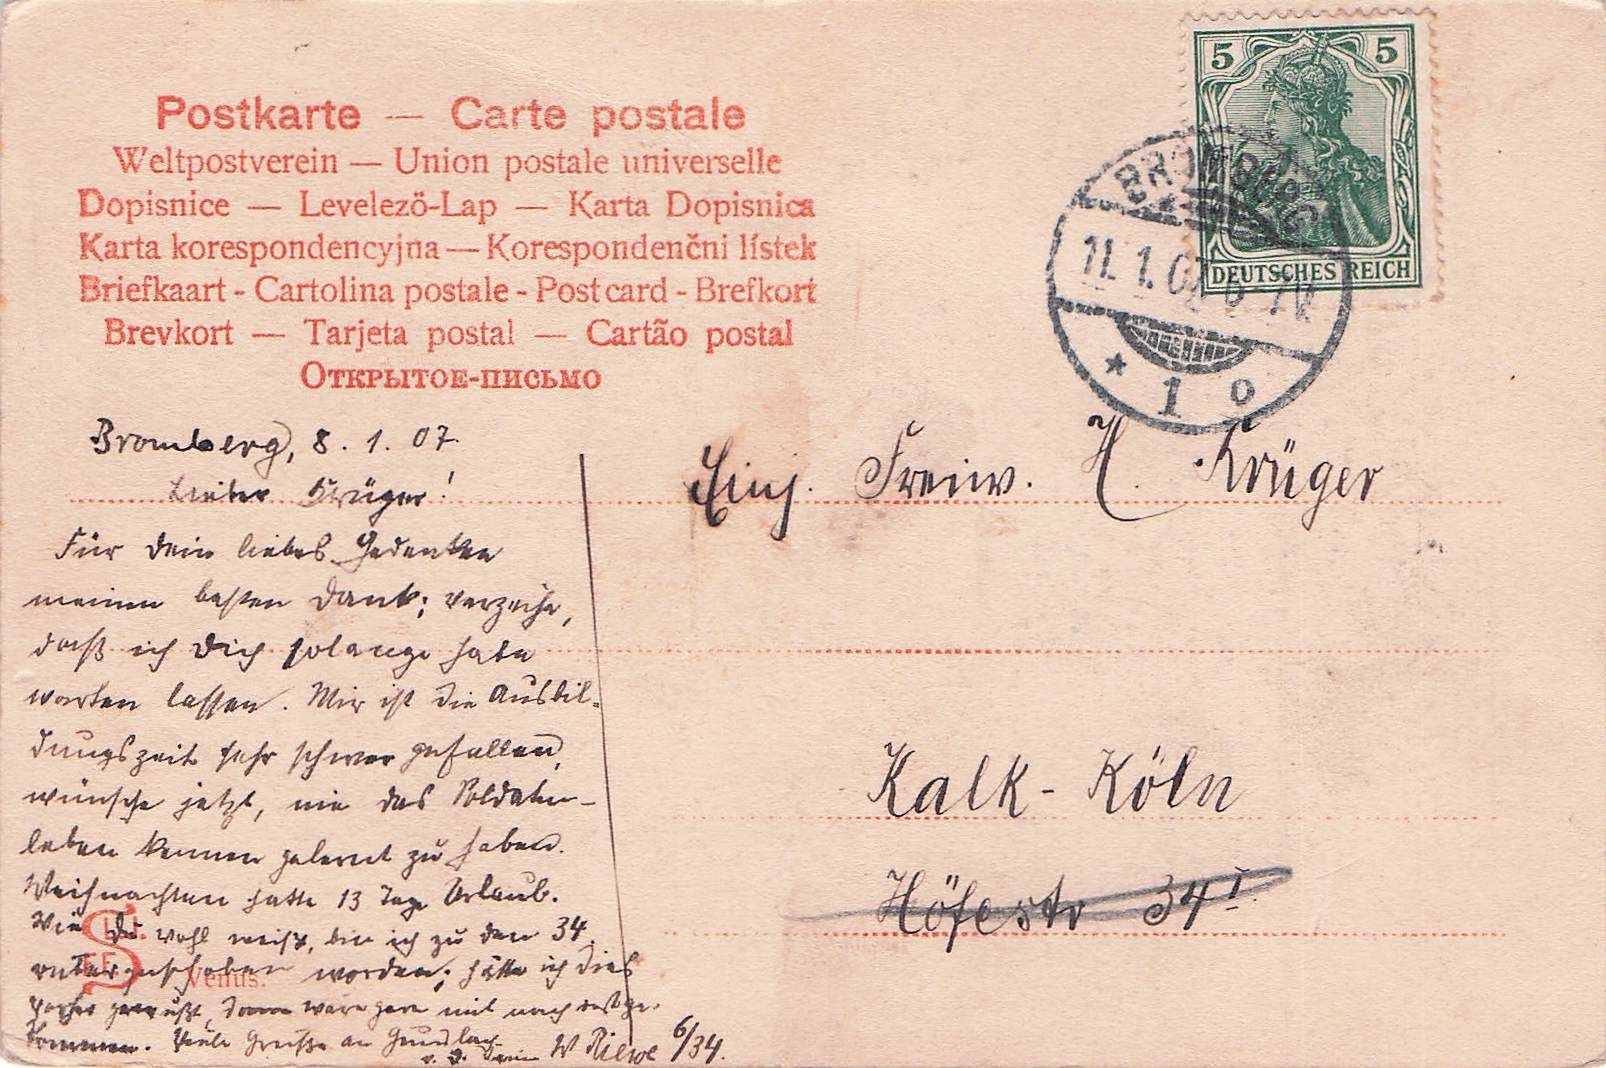 Postkarte — Carte postale
Weltpostverein — Union postale universelle
Dopisnice — Levelezö-Lap — Karta Dopisnica
Karta korespondencyjna — Korespondenčni lístek
Briefkaart - Cartolina postale - Post card - Brefkort
Brevkort — Tarjeta postal — Cartão postal
Открытое-письмо
5 5
DEUTSCHES REICH
BROMBERG
11.1.07 6-7V
* 1 o
Bromberg, 8.1.07.
Lieber Krüger!
Für Dein liebes Gedenken
meinen besten Dank; verzeihe,
daß ich Dich solange habe
warten lassen. Mir ist die Ausbil-
dungszeit sehr schwer gefallen,
wünsche jetzt, nie das Soldaten-
leben kennen gelernt zu haben.
Weihnachten hatte 13 Tage Urlaub.
Wie Du wohl weißt, bin ich zu den 34.
untergeschoben worden; hätte ich dies
vorher gewußt, dann wäre gern mit nach
kommen. Viele Grüße an Gundlach
v. D. W Riewe 6/34.
Venus.
Einj. Freiw. H. Krüger
Kalk-Köln
Höfestr 34 I